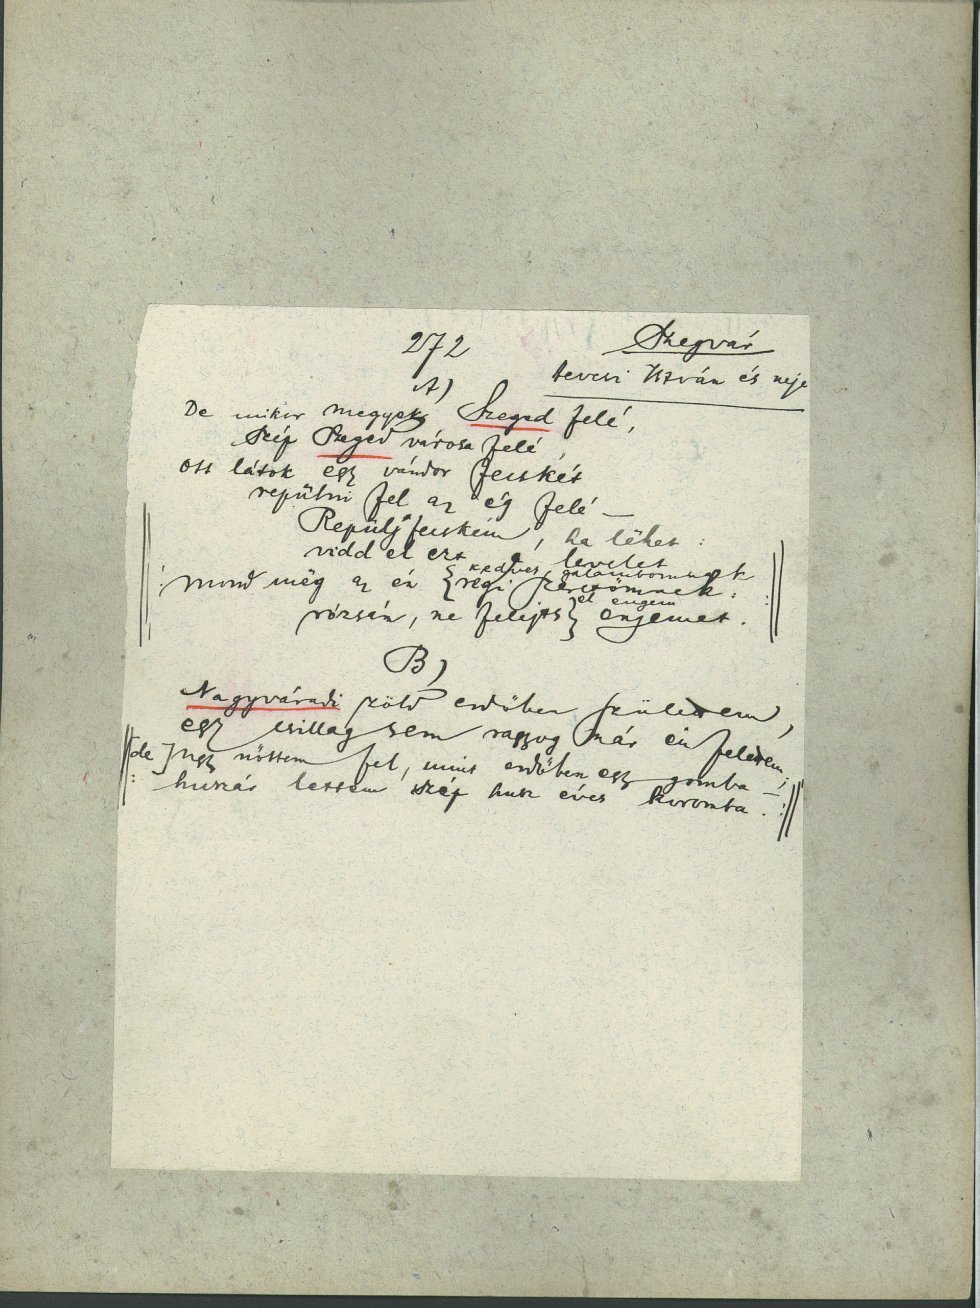 272
Szegvár
tevesi István és neje
A)
De mikor megyek Szeged felé,
szép Szeged városa felé,
ott látok egy vándor fecskét
repülni fel az ég felé —
Repülj fecském, ha lëhet :
vidd el ezt a levelet
kedves galambomnak
: mond mëg az én { régi szeretőmnek :
el engem
rózsán, ne felejts } engemet. :
B)
Nagyváradi zöld erdőben születtem,
egy csillag sem ragyog már én felettem;
[de] ugy nőttem fel, mint erdőben egy gomba —
: huszár lettem szép husz éves koromba. :